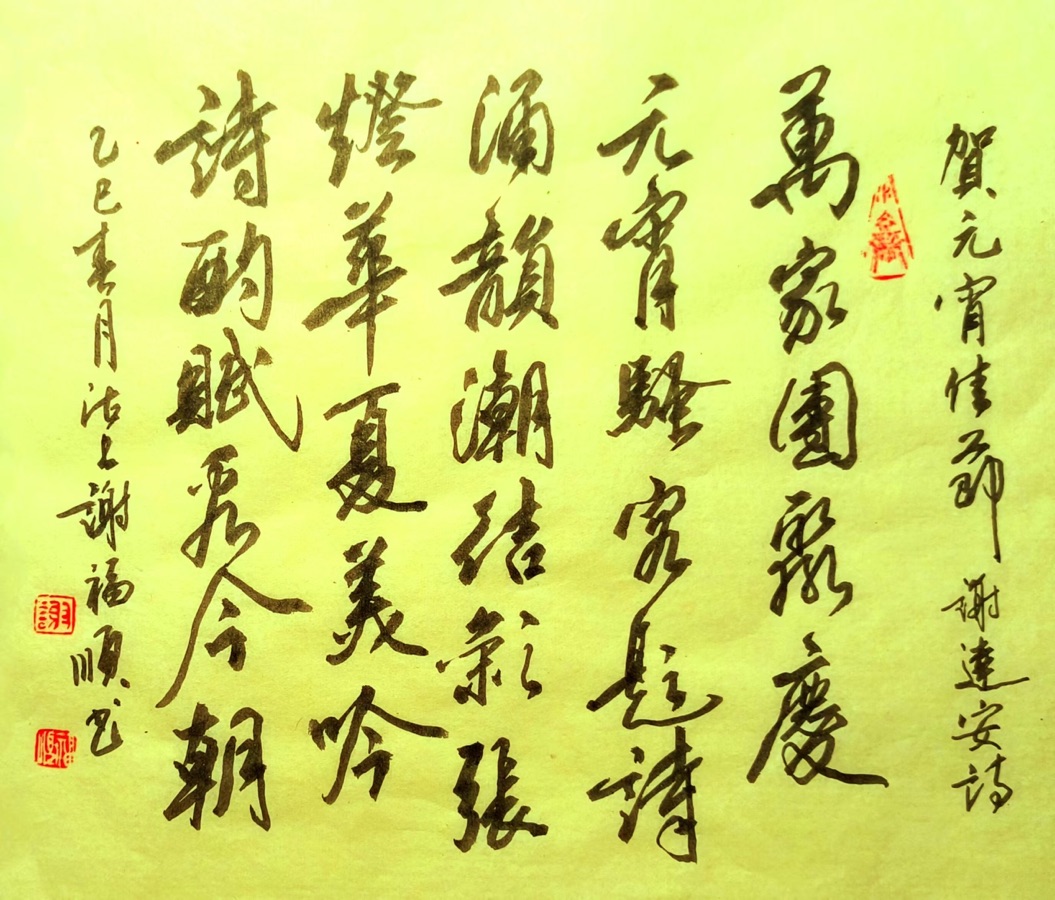 賀元宵佳節 謝達安詩
萬家團聚慶
元宵騷客題詩
涌韻潮結彩張
燈華夏美吟
詩酌賦看今朝
乙巳春月沽上謝福順书
謝